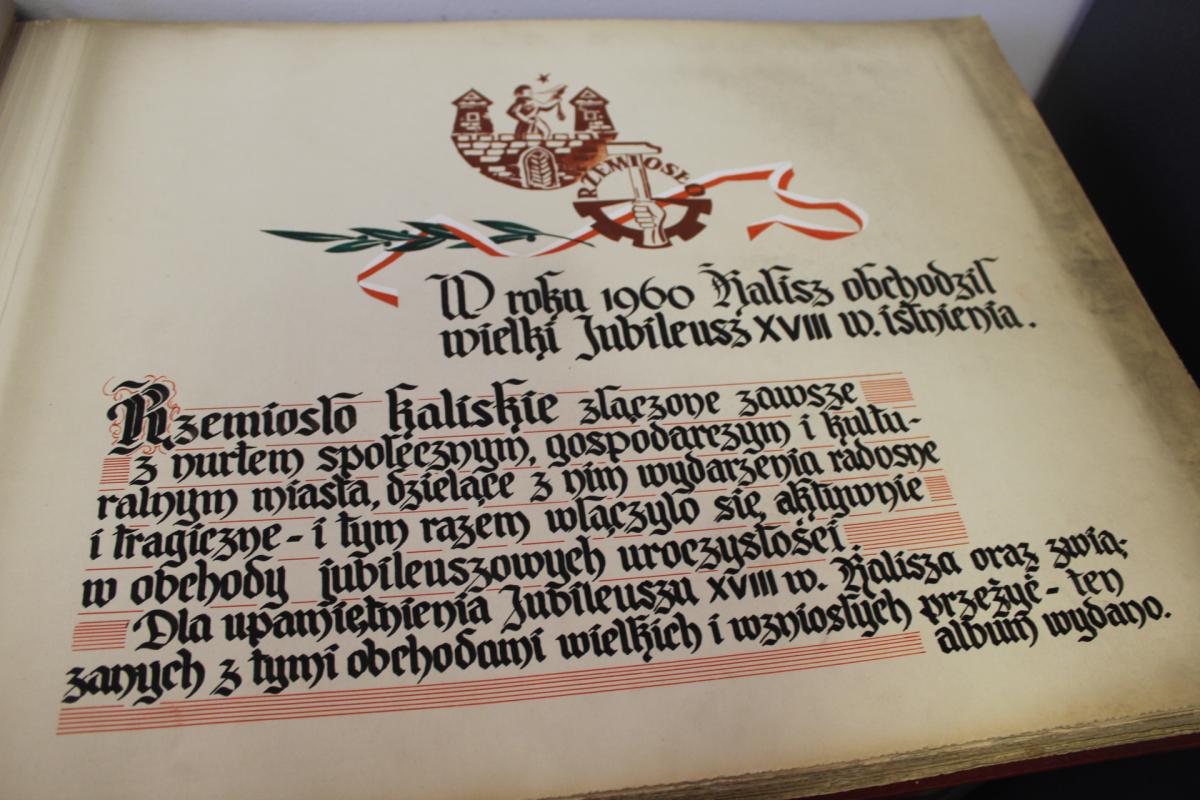 RZEMIOSŁO
W roku 1960 Kalisz obchodził
wielki Jubileusz XVIII w. istnienia.
Rzemiosło kaliskie złączone zawsze
z nurtem społecznym, gospodarczym i kultu-
ralnym miasta, dzielące z nim wydarzenia radosne
i tragiczne - i tym razem włączyło się aktywnie
w obchody jubileuszowych uroczystości.
Dla upamiętnienia Jubileuszu XVIII w. Kalisza oraz zwią-
zanych z tymi obchodami wielkich i wzniosłych przeżyć - ten
album wydano.